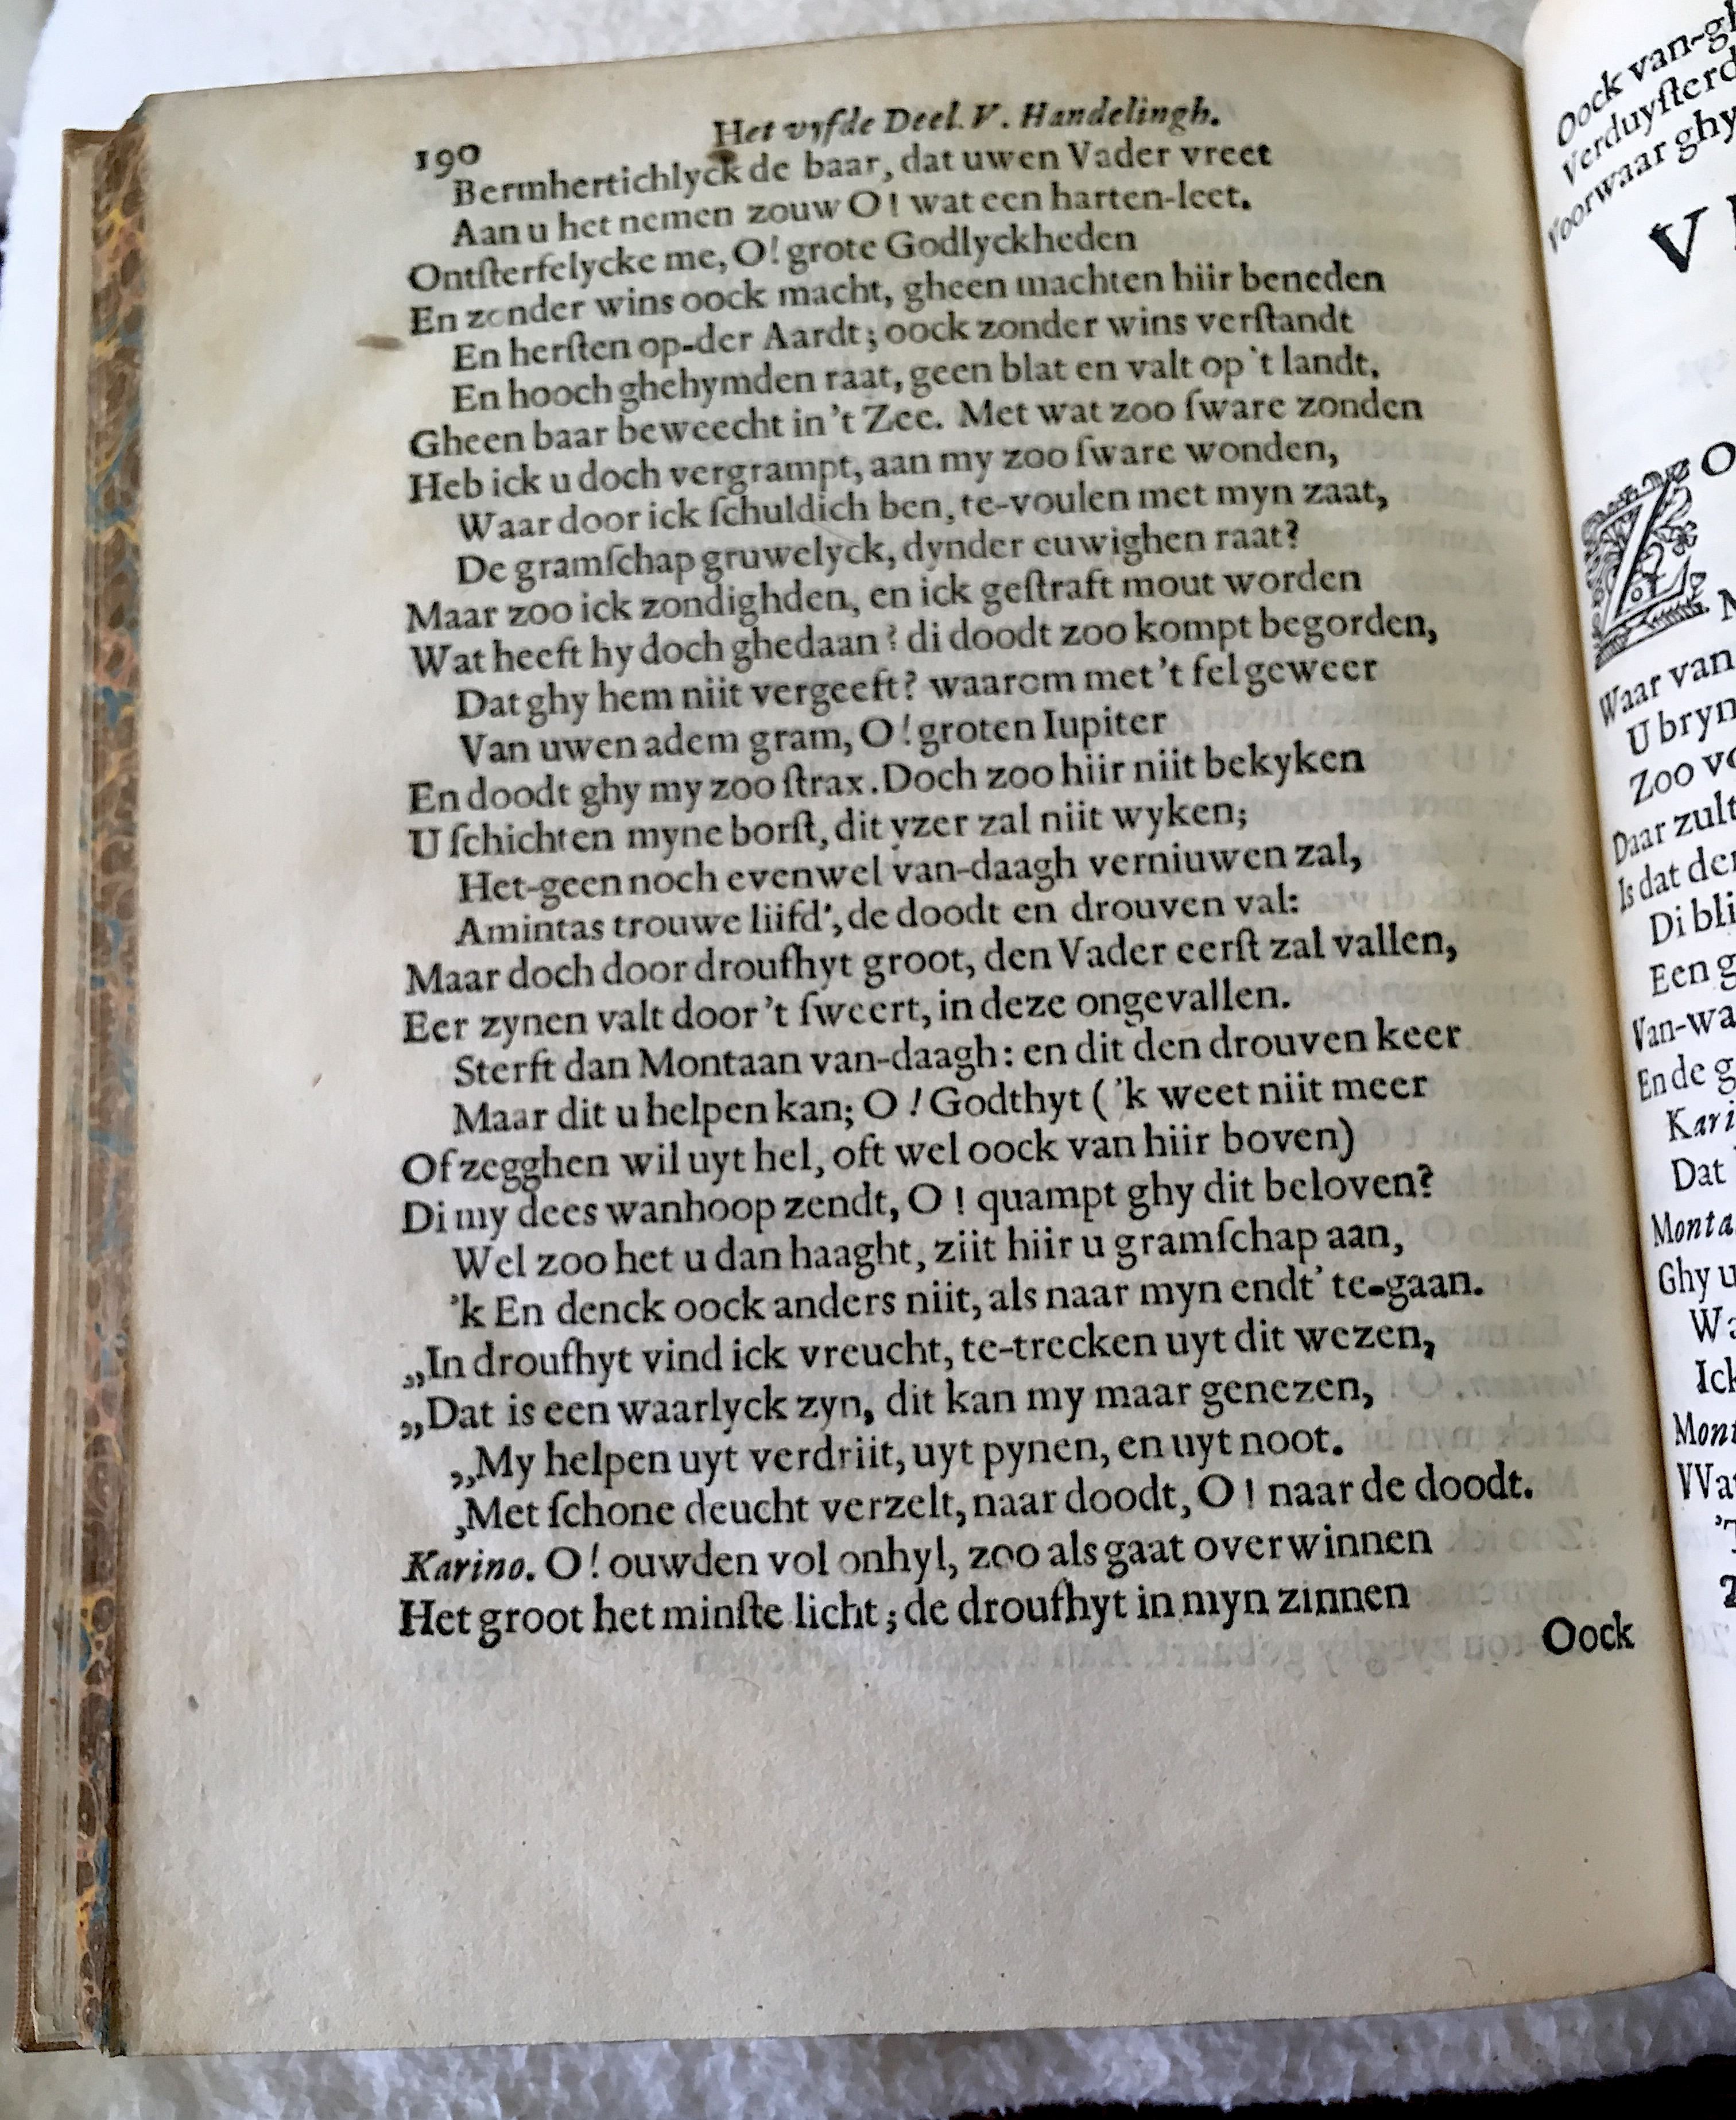 190 Het vyfde Deel. V. Handelingh.
Bermhertichlyck de baar, dat uwen Vader vreet
Aan u het nemen zouw O! wat een harten-leet.
Ontſterfelycke me, O! grote Godlyckheden
En zonder wins oock macht, gheen machten hiir beneden
En herſten op-der Aardt; oock zonder wins verſtandt
En hooch ghehymden raat, geen blat en valt op 't landt,
Gheen baar beweecht in 't Zee. Met wat zoo ſware zonden
Heb ick u doch vergrampt, aan my zoo ſware wonden,
Waar door ick ſchuldich ben, te-voulen met myn zaat,
De gramſchap gruwelyck, dynder euwighen raat?
Maar zoo ick zondighden, en ick geſtraft mout worden
Wat heeft hy doch ghedaan? di doodt zoo kompt begorden,
Dat ghy hem niit vergeeft? waarom met 't fel geweer
Van uwen adem gram, O! groten Iupiter
En doodt ghy my zoo ſtrax. Doch zoo hiir niit bekyken
U ſchichten myne borſt, dit yzer zal niit wyken;
Het-geen noch evenwel van-daagh verniuwen zal,
Amintas trouwe liifd', de doodt en drouven val:
Maar doch door droufhyt groot, den Vader eerſt zal vallen,
Eer zynen valt door 't ſweert, in deze ongevallen.
Sterft dan Montaan van-daagh: en dit den drouven keer
Maar dit u helpen kan; O! Godthyt ('k weet niit meer
Of zegghen wil uyt hel, oft wel oock van hiir boven)
Di my dees wanhoop zendt, O! quampt ghy dit beloven?
Wel zoo het u dan haaght, ziit hiir u gramſchap aan,
'k En denck oock anders niit, als naar myn endt' te-gaan.
,,In droufhyt vind ick vreucht, te-trecken uyt dit wezen,
,,Dat is een waarlyck zyn, dit kan my maar genezen,
,,My helpen uyt verdriit, uyt pynen, en uyt noot.
,Met ſchone deucht verzelt, naar doodt, O! naar de doodt.
Karino. O! ouwden vol onhyl, zoo als gaat overwinnen
Het groot het minſte licht; de droufhyt in myn zinnen
Oock
Oock van-gh
Verduyſterd
Voorwaar ghy
V
ZO
Waar van
U bryn
Zoo vo
Daar zult
Is dat den
Di bli
Een g
Van-wa
Ende g
Kari
Dat
Monta
Ghy u
Wa
Ick
Mont
VVa
'T